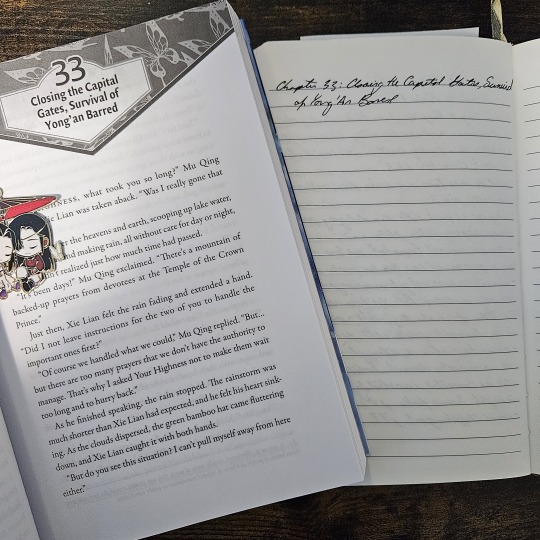 33
Closing the Capital
Gates, Survival of
Yong'an Barred
what took you so long?" Mu Qing
Lian was taken aback. "Was I really gone that
the heavens and earth, scooping up lake water,
and making rain, all without care for day or night,
realized just how much time had passed.
"It's been days!" Mu Qing exclaimed. "There's a mountain of
backed-up prayers from devotees at the Temple of the Crown
Prince."
Just then, Xie Lian felt the rain fading and extended a hand.
"Did I not leave instructions for the two of you to handle the
important ones first?"
"Of course we handled what we could," Mu Qing replied. "But...
but there are too many prayers that we don't have the authority to
manage. That's why I asked Your Highness not to make them wait
too long and to hurry back."
As he finished speaking, the rain stopped. The rainstorm was
much shorter than Xie Lian had expected, and he felt his heart sink-
ing. As the clouds dispersed, the green bamboo hat came fluttering
down, and Xie Lian caught it with both hands.
"But do you see this situation? I can't pull myself away from here
either."
Chapter 33: Closing the Capital Gates, Survival
of Yong'An Barred